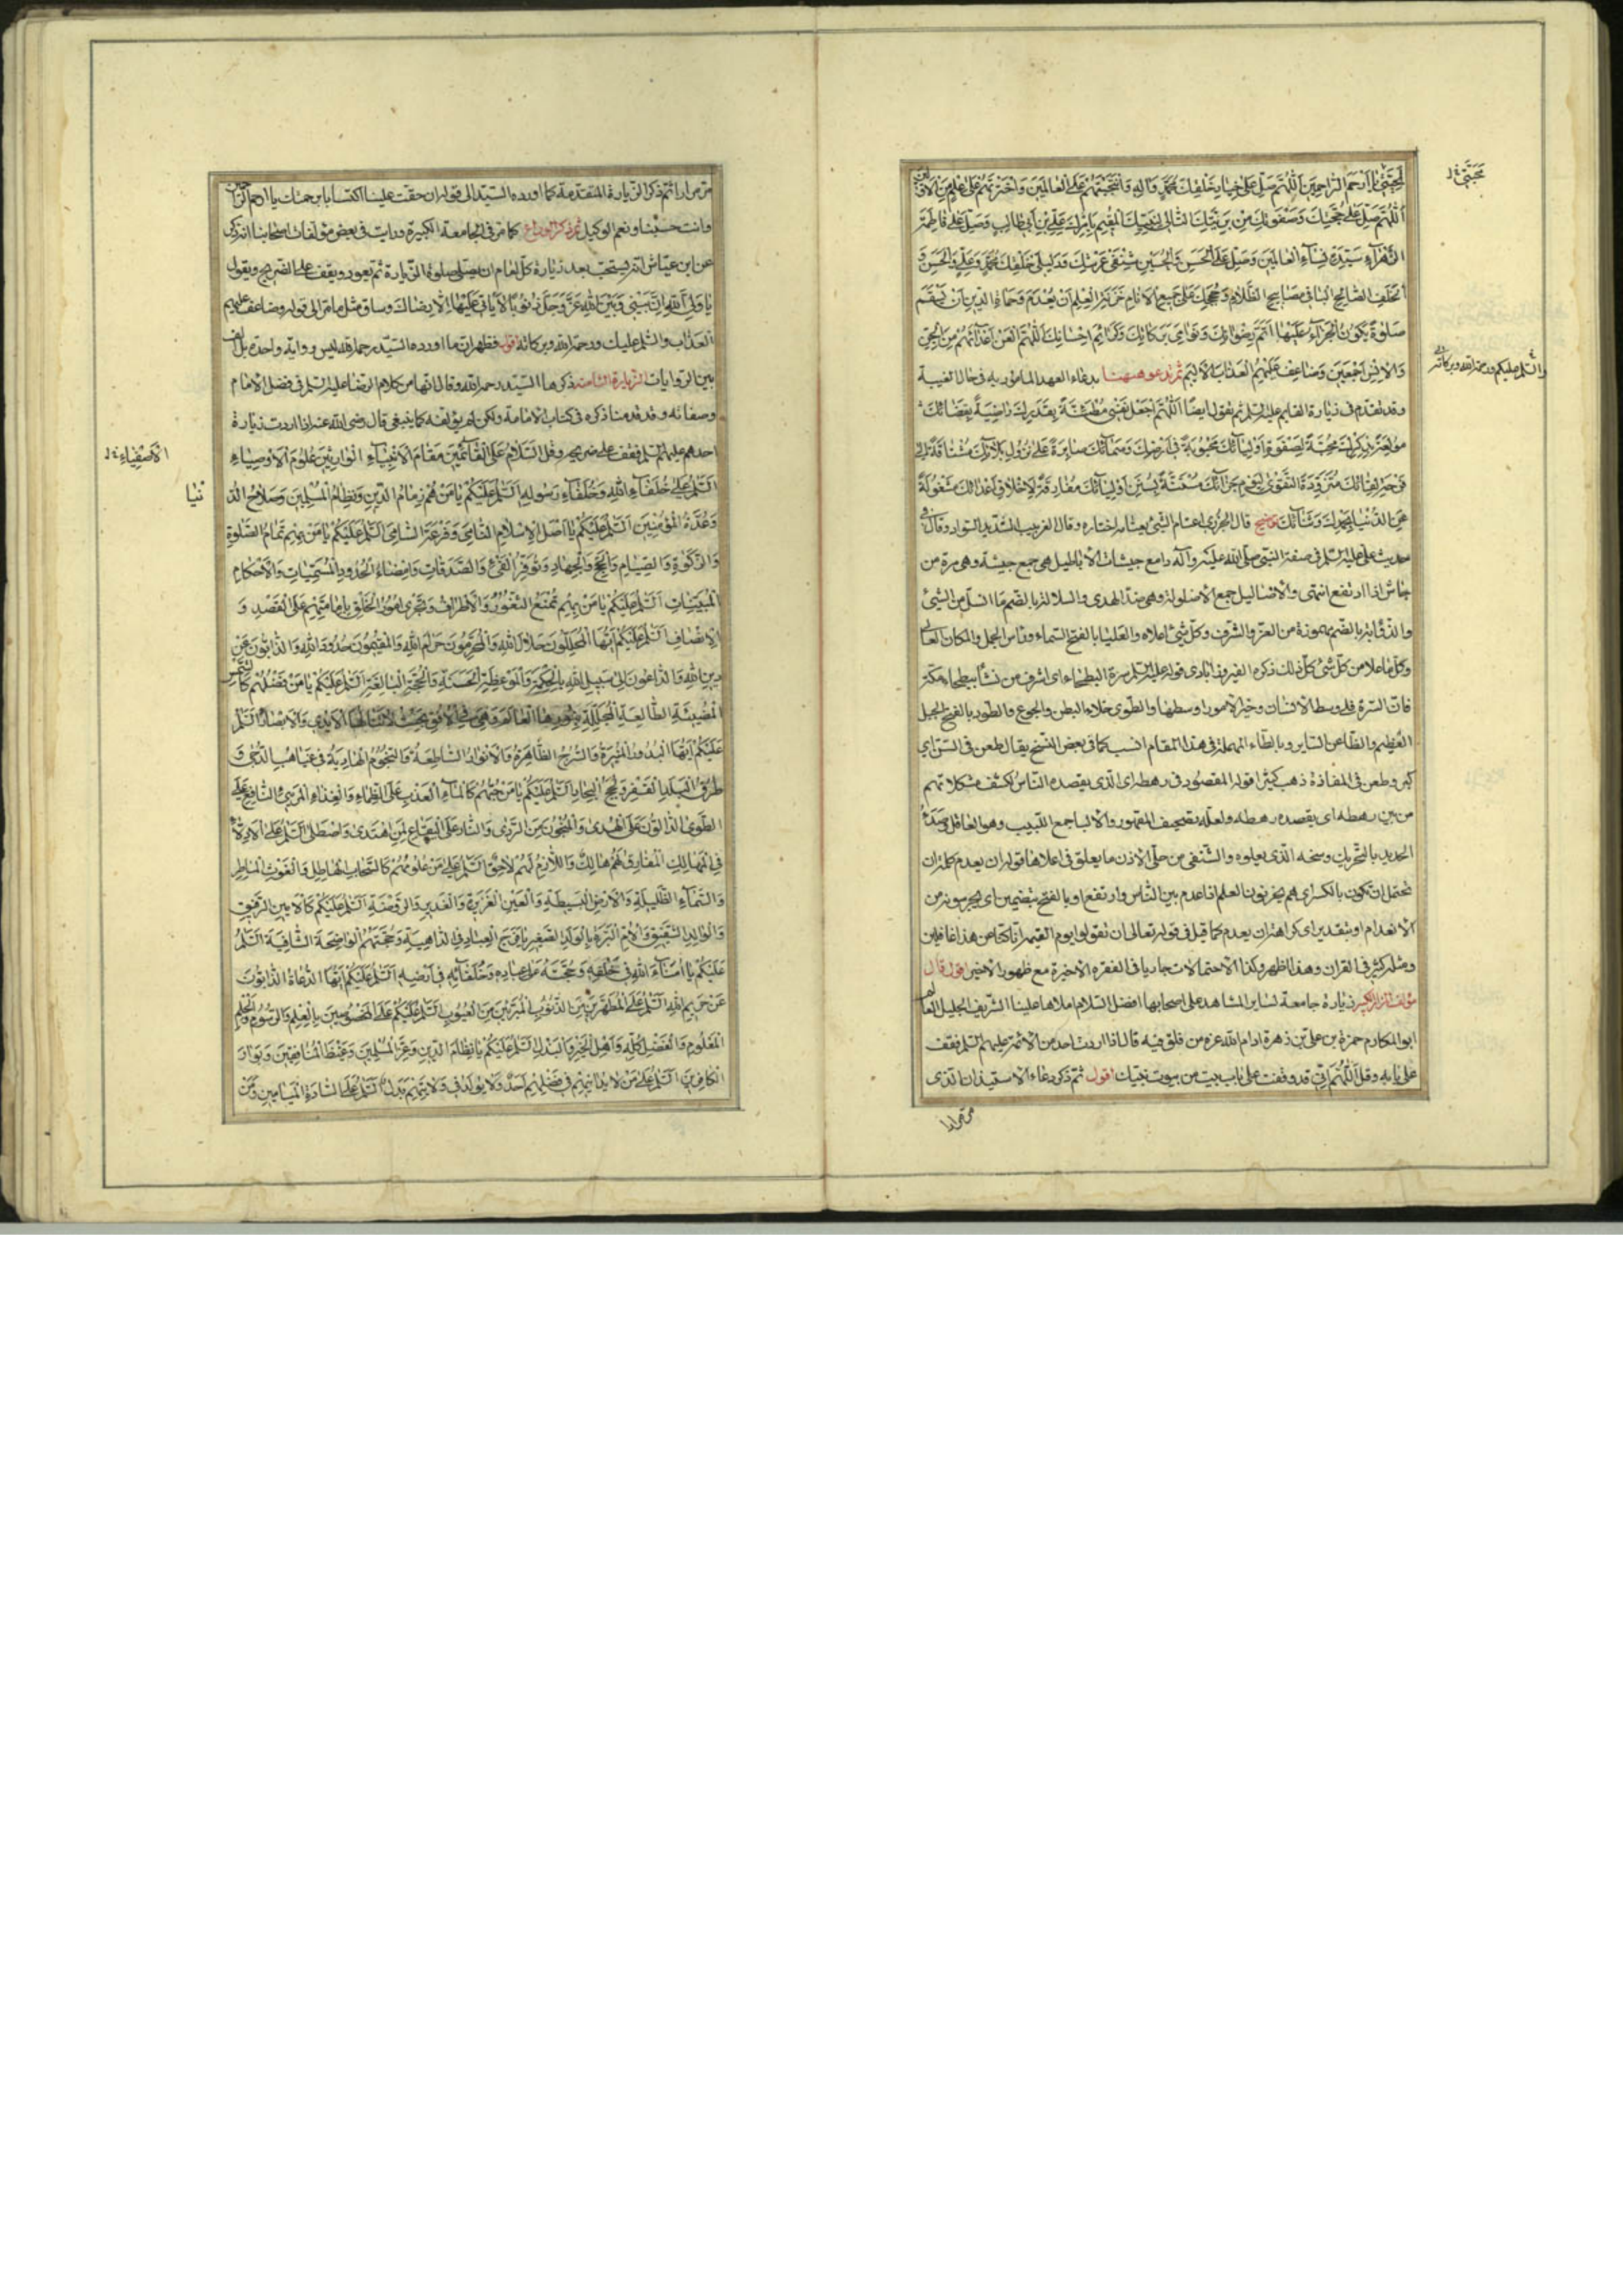 لمحبتي يا ارحم الراحمين اللهم صل على خيار خلقك محمد وآله وانتجبتهم على العالمين واخترتهم على علم من الاولين
اللهم صل على حجتك وصفوتك من بريتك التالي لنبيك المقيم بامرك علي بن ابي طالب وصل على فاطمة
الزهراء سيدة نساء العالمين وصل على الحسن والحسين شنفي عرشك ودليلي خلقك محمد وعلي والحسن و
الخلف الصالح الباقي مصابيح الظلام وحججك على جميع الانام خزنة العلم ان يعدم وحماة الدين ان يسقم
صلوة يكون الجزاء عليها اتم رضوانك ونوامي بركاتك وكرائم احسانك اللهم العن اعدائهم من الجن
والانس اجمعين وضاعف عليهم العذاب الاليم ثم تدعو هيهنا بدعاء العهد المامور به في حال الغيبة
وقد تقدم في زيارة القايم عليه السلم ثم تقول ايضا اللهم اجعل نفسي مطمئنة بقدرك راضية بقضائك
مولعة بذكرك محبة لصفوة اوليائك محبوبة في ارضك وسمائك صابرة على نزول بلائك مشتاقة الى
فرحة لقائك متزودة التقوى ليوم جزائك مستنة بسنن اوليائك مفارقة لاخلاق اعدائك مشغولة
عن الدنيا بحمدك وثنائك توضيح قال الجزري اعتام الشئ يعتامه اختاره وقال الغربيب الشديد السواد وقال في
حديث علي عليه السلم في صفة النبي صلى الله عليه وآله دامغ جيشات الاباطيل هي جمع جيشة وهي مرة من
جاش اذا ارتفع انتهى والاضاليل جمع الاضلولة وهي ضد الهدى والسلالة بالضم ما انسل من الشئ
والذؤابة بالضم مهموزة من العز والشرف وكل شئ اعلاه والعليا بالفتح السماء وراس الجبل والمكان العالي
وكل ما علا من كل شئ كل ذلك ذكره الفيروزابادي قوله عليه السلم سرة البطحاء اي اشرف من نشأ ببطحاء مكة
فان السرة في وسط الانسان وخير الامور اوسطها والطوى خلاء البطن والجوع والطود بالفتح الجبل
العظيم والظاعن الساير وبالطاء المهملة في هذا المقام انسب كما في بعض النسخ يقال طعن في السن اي
كبر وطعن في المفازة ذهب كثيرا قوله المقصود في رهطه اي الذي يقصده الناس لكشف مشكلاتهم
من بين رهطه اي يقصده رهطه ولعله تصحيف المقهور والالبا جمع اللبيب وهو العاقل وصدأ
الحديد بالتحريك وسخه الذي يعلوه والشنفي من حلي الاذن ما يعلق في اعلاها قوله ان يعدم كلمة ان
تحتمل ان تكون بالكسر اي هم يخزنون العلم اذا عدم بين الناس وارتفع او بالفتح بتضمين اي يحرسونه من
الانعدام او بتقدير اي كراهة ان يعدم كما قيل في قوله تعالى ان تقولوا يوم القيمة انا كنا عن هذا غافلين
ومثله كثير في القران وهذا اظهر وكذا الاحتمالات جارية في الفقره الاخيرة مع ظهور الاخير اقول قال
مؤلف المزار الكبير زيارة جامعة لساير المشاهد على اصحابها افضل السلام املاها علينا الشريف الجليل العالم
ابو المكارم حمزة بن علي بن زهرة ادام الله عزه من فلق فيه قال اذا اردت احد من الائمة عليهم السلم فقف
على بابه وقل اللهم اني قد وقفت على باب بيت من بيوت نبيك اقول ثم ذكر دعاء الاستيذان الذي
مجتبى
والسلم عليكم ورحمة الله وبركاته
مر مرارا
مر مرارا ثم ذكر الزيارة المتقدمة كما اورده السيد الى قوله ان حقت علينا اكتسابا برحمتك يا ارحم الراحمين
وانت حسبنا ونعم الوكيل ثم ذكر الوداع كما مر في الجامعة الكبيرة ورايت في بعض مؤلفات اصحابنا انه ذكر
عن ابن عياش انه يستحب بعد زيارة كل امام ان يصلي صلوة الزيارة ثم يعود ويقف على الضريح ويقول
يا ولي الله ان بيني وبين الله عز وجل ذنوبا لا ياتي عليها الا رضاك وساق مثل ما مر الى قوله وضاعف عليهم
العذاب والسلم عليك ورحمة الله وبركاته اقول فظهر ان ما اورده السيد رحمه الله ليس رواية واحدة بل الف
بين الروايات الزيارة الثامنة ذكرها السيد رحمه الله وقال انها من كلام الرضا عليه السلم في فضل الامام
وصفاته وقد قدمنا ذكره في كتاب الامامة ولكن لم يؤلفه كما ينبغي قال رضي الله عنه اذا اردت زيارة
احدهم عليهم السلم فقف على ضريحه وقل السلام على القائمين مقام الانبياء الوارثين علوم الاوصياء
السلم على خلفاء الله وخلفاء رسوله السلم عليكم يا من هم زمام الدين ونظام المسلمين وصلاح الد
وعدة المؤمنين السلم عليكم يا اصل الاسلام النامي وفرعه السامي السلم عليكم يا من بهم تمام الصلوة
والزكوة والصيام والحج والجهاد وتوفير الفئ والصدقات وامضاء الحدود المسميات والاحكام
المبينات السلم عليكم يا من بهم تمنع الثغور والاطراف وتجرى امور الخلق بامامتهم على القصد و
الانصاف السلم عليكم ايها المحللون حلال الله والمحرمون حرام الله والمقيمون حدود الله والذابون عن
دين الله والداعون الى سبيل الله بالحكمة والموعظة الحسنة والحجة البالغة السلم عليكم يا من فضلهم كالشمس
المضيئة الطالعة المجللة بنورها العالم وهي في الافق بحيث لا تنالها الايدي والابصار السلم
عليكم ايها البدور المنيرة والسرج الظاهرة والانوار الساطعة والنجوم الهادية في غياهب الدجى و
طرق البلد القفر ولجج البحار السلم عليكم يا من حبهم كالماء العذب على الظماء والغذاء المرئ النافع على
الطوى الدالون على الهدى والمنجون من الردى والنار على اليفاع لمن اهتدى واصطلى السلم على الادلاء
في المهالك المفارق لهم هالك واللازم لهم لاحق السلم على من علومهم كالسحاب الهاطل والغوث الماطر
والسماء الظليلة والارض البسيطة والعين الغزيرة والغدير والروضة السلم عليكم كالامين الرفيق
والوالد الشفيق والام البرة بالولد الصغير يا مفزع العباد في الداهية وحجتهم الواضحة الشافية السلم
عليكم يا امناء الله في خلقه وحجته على عباده وخلفائه في ارضه السلم عليكم ايها الدعاة الذابون
عن حريم الله السلم على المطهرين من الذنوب المبرئين من العيوب السلم عليكم على المخصوصين بالعلم والموسومين بالحلم
المعلوم والفضل كله واهل الخير والبذل السلم عليكم يا نظام الدين وعز المسلمين وغيظ المنافقين وبوار
الكافرين السلم على من لا يدانيهم في فضلهم احد ولا يوجد في ولايتهم بدل السلم على السادة الميامين ومن
الاصفياء
نيا